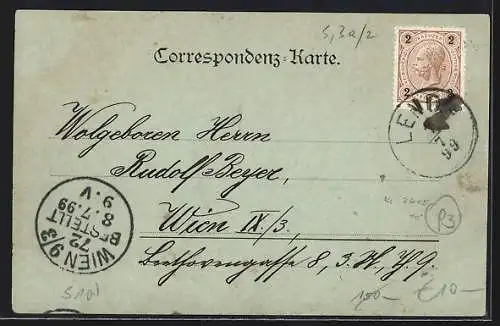 S, 3a/2
Correspondenz-Karte.
2 2
2
LEND
7
99
Wolgeboren Herrn
Rudolf Beyer,
Wien IX/3.
Beethovengasse 8, 3. St., Th. 9.
WIEN 9/3
72
BESTELLT
8.7.99
9.V
P3
150-
€10-